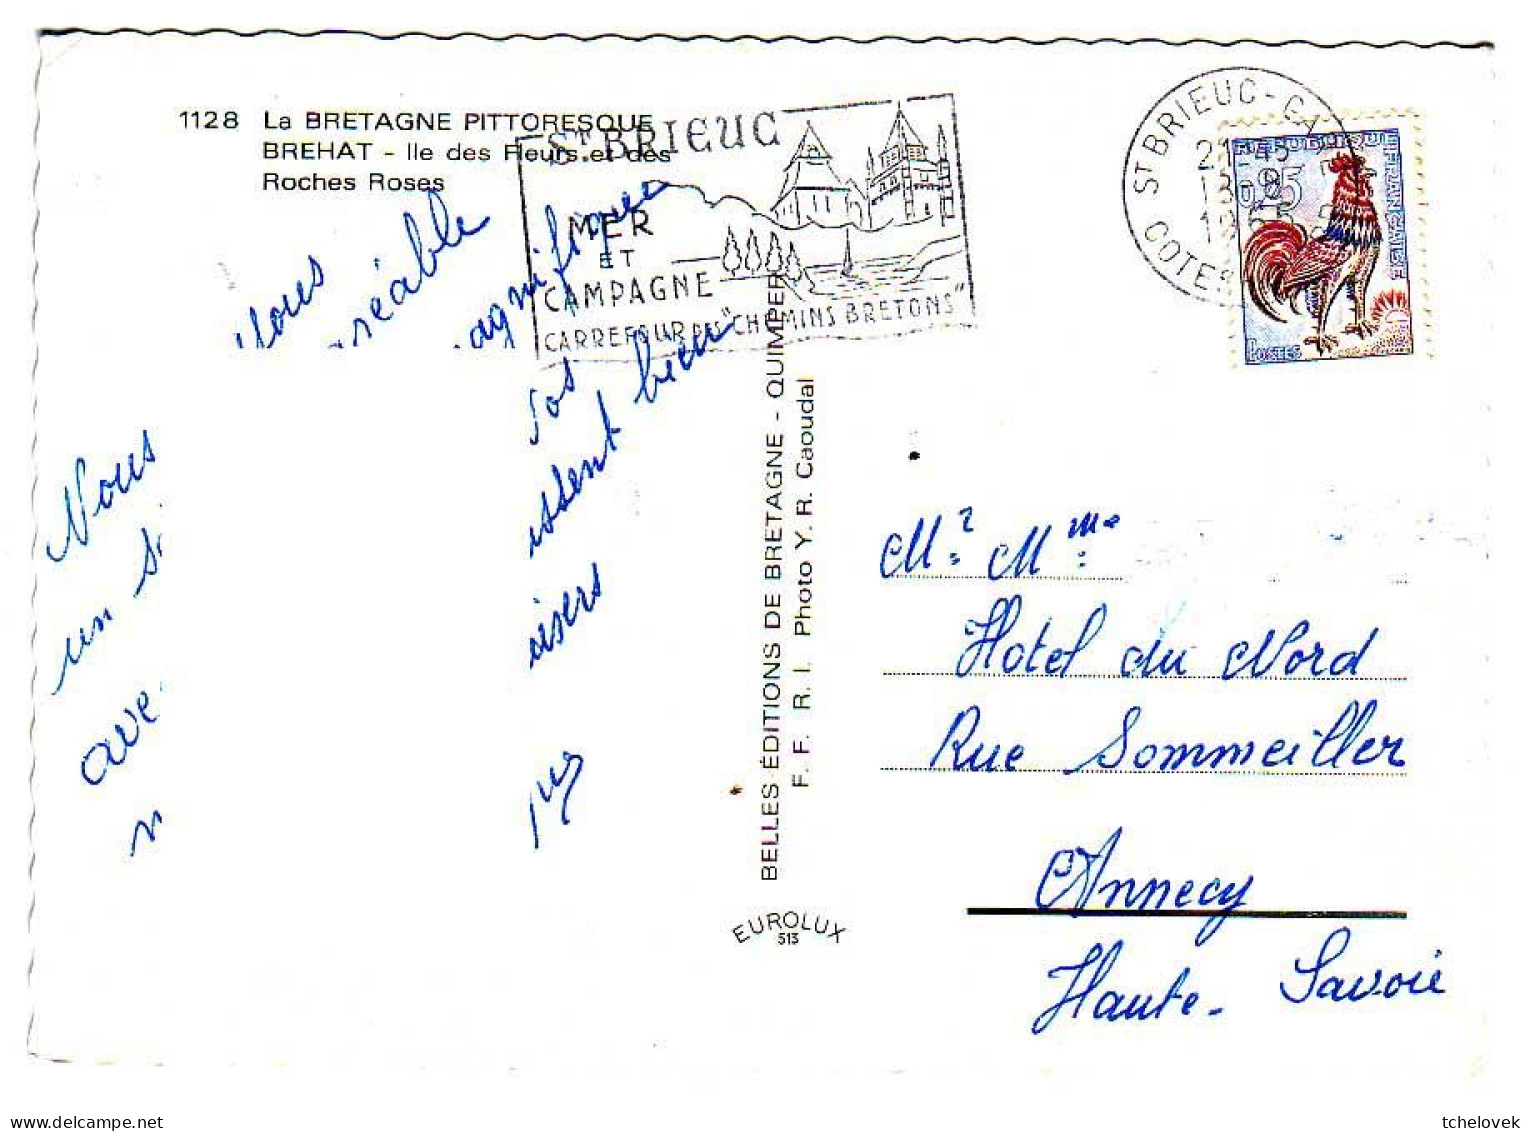 1128 La BRETAGNE PITTORESQUE
BREHAT - Ile des Fleurs et des
Roches Roses
ST BRIEUC
MER
ET
CAMPAGNE
CARREFOUR DES "CHEMINS BRETONS"
ST BRIEUC-GA
21-45
COTES
REPUBLIQUE FRANÇAISE
0,25
POSTES
Nous
réable
agnifique
Nous
un s
ave
n
issent bien
aisers
BELLES EDITIONS DE BRETAGNE - QUIMPER
F. F. R. I. Photo Y. R. Caoudal
EUROLUX
513
Mr Mme
Hotel du Nord
Rue Sommeiller
Annecy
Haute-Savoie
tchelovek